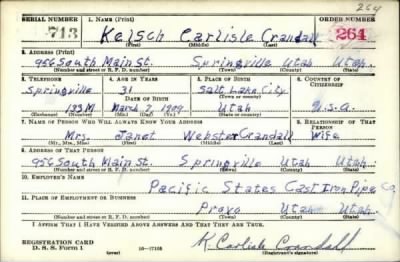 264
SERIAL NUMBER 1. NAME (Print) ORDER NUMBER
713 Kelsch Carlisle Crandall 264
(First) (Middle) (Last)
2. ADDRESS (Print)
956 South Main St. Springville Utah Utah.
(Number and street or R. F. D. number) (Town) (County) (State)
3. TELEPHONE 4. AGE IN YEARS 5. PLACE OF BIRTH 6. COUNTRY OF CITIZENSHIP
Springville 31 Salt Lake City
DATE OF BIRTH (Town or county)
193M March 7, 1909 Utah U.S.A.
(Exchange) (Number) (Mo.) (Day) (Yr.) (State or country)
7. NAME OF PERSON WHO WILL ALWAYS KNOW YOUR ADDRESS 8. RELATIONSHIP OF THAT PERSON
Mrs. Janet Webster Crandall Wife
(Mr., Mrs., Miss) (First) (Middle) (Last)
9. ADDRESS OF THAT PERSON
956 South Main St. Springville Utah Utah.
(Number and street or R. F. D. number) (Town) (County) (State)
10. EMPLOYER'S NAME
Pacific States Cast Iron Pipe Co.
11. PLACE OF EMPLOYMENT OR BUSINESS
Provo Utah Utah
(Number and street or R. F. D. number) (Town) (County) (State)
I AFFIRM THAT I HAVE VERIFIED ABOVE ANSWERS AND THAT THEY ARE TRUE.
REGISTRATION CARD
D. S. S. FORM 1 (over) 16-17105 K. Carlisle Crandall
(Registrant's signature)